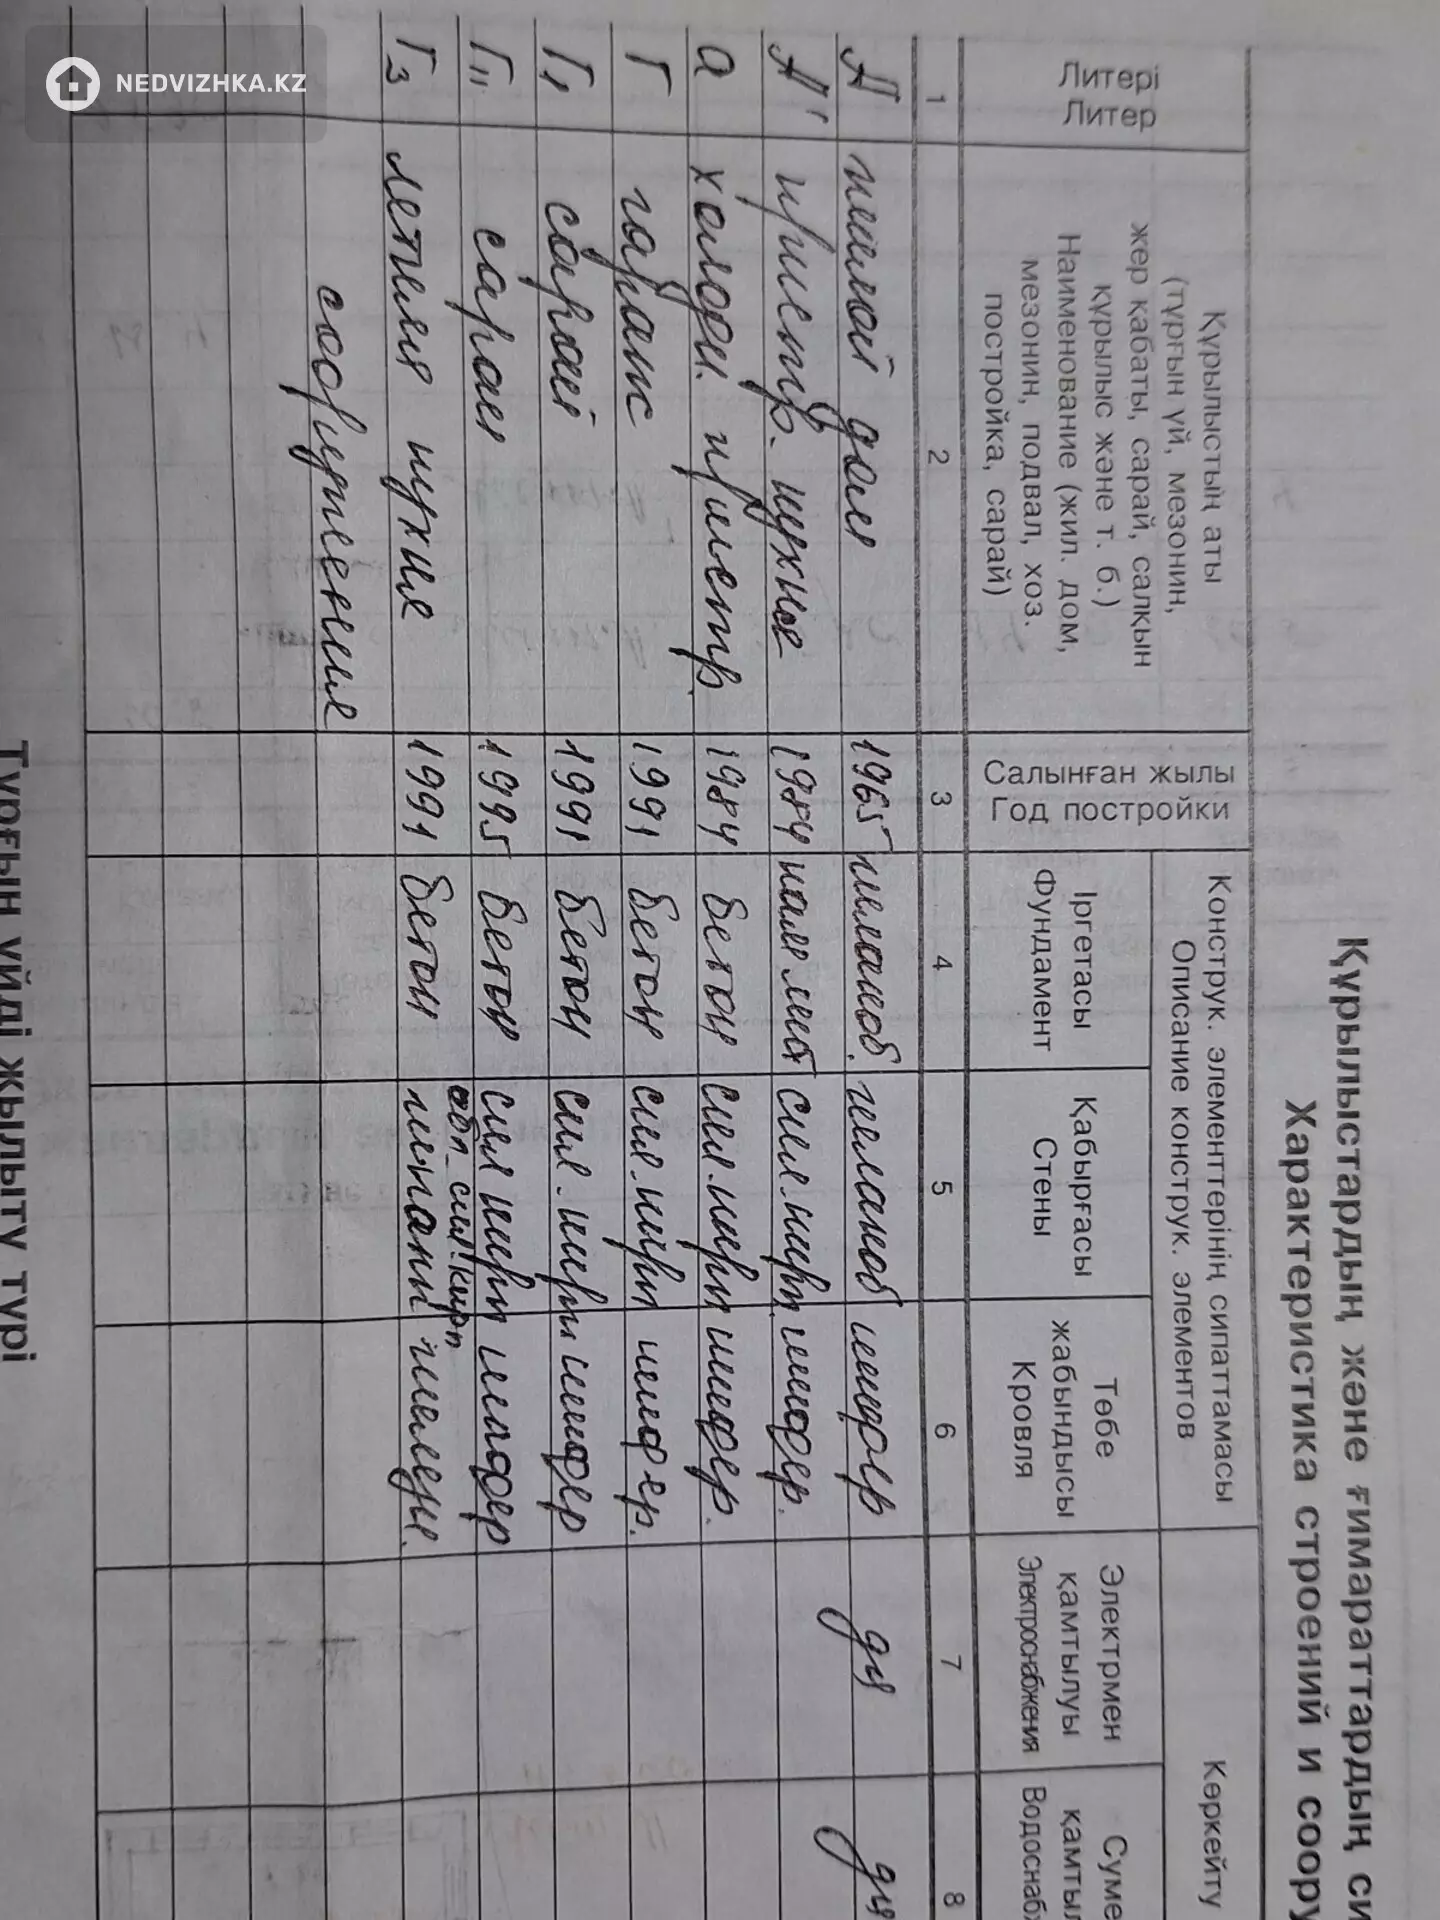 NEDVIZHKA.KZ
Құрылыстардың және ғимараттардың си
Характеристика строений и соору
Литері
Литер
Құрылыстың аты
(тұрғын үй, мезонин,
жер қабаты, сарай, салқын
құрылыс және т. б.)
Наименование (жил. дом,
мезонин, подвал, хоз.
постройка, сарай)
Салынған жылы
Год постройки
Конструк. элементтерінің сипаттамасы
Описание конструк. элементов
Іргетасы
Фундамент
Қабырғасы
Стены
Төбе
жабындысы
Кровля
Көркейту
Электрмен
қамтылуы
Электроснабжения
Суме
қамтыл
Водоснаб
1 2 3 4 5 6 7 8
А жилой дом 1965 шлакоб. шлакоб шифер
А' пристр. кухня 1984 шифер.
а холодн. пристр. 1984 бетон сил. кирп шифер.
Г гараж 1991 бетон сил. кирп шифер.
Г1 сарай 1991 бетон сил. кирп шифер
Г11 сарай 1995 бетон сил кирп шифер
обл. сил. кирп
Г3 летняя кухня 1991 бетон
сооружение
Тұрғын үйді жылыту түрі